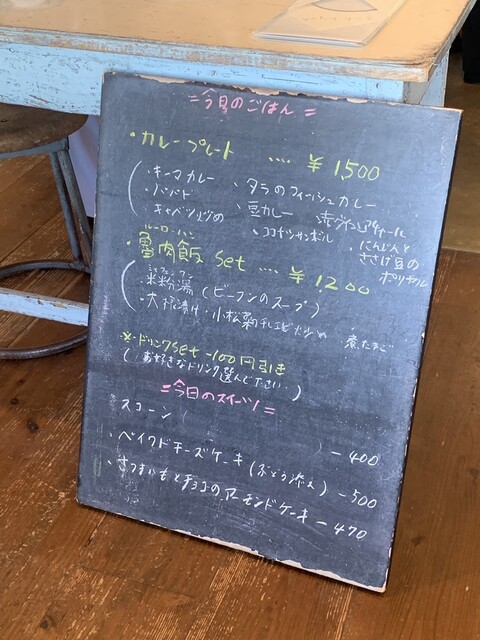 =今日のごはん=
・カレープレート …. ¥1,500
・キーマカレー ・タラのフィッシュカレー
・パパド ・豆カレー
キャベツ ・ココナッツサンボル ・にんじんと
ささげ豆の
ポリヤル
ルーローハン
・魯肉飯 set …. ¥1200
ミーフェンタン
・米粉湯(ビーフンのスープ)
・大根漬け・小松菜 煮たまご
※・ドリンクset -100円引き
(お好きなドリンク選んで下さい。)
=今日のスイーツ=
スコーン( ) -400
・ベイクドチーズケーキ(ぶどう添え) -500
・さつまいもとチョコのアーモンドケーキ -470